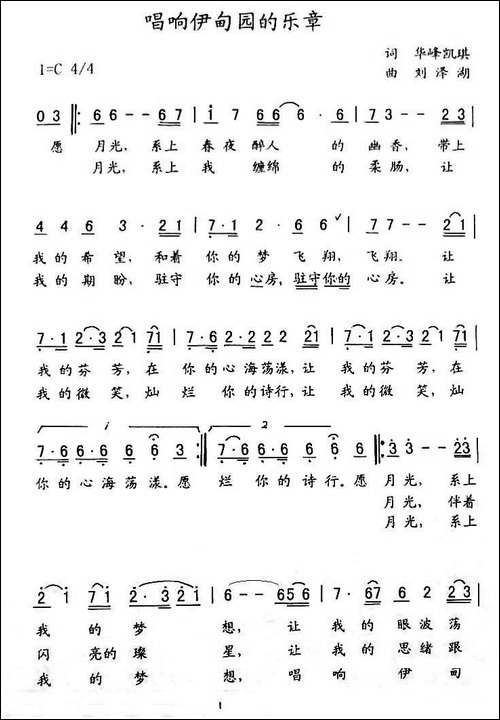 唱响伊甸园的乐章
词 华峰凯琪
1=C 4/4
曲 刘泽湖
0 3 6 6 - - 6 7 i 7 6 6 6 · 6 7 3 - - 2 3
愿 月光, 系上 春夜 醉人 的 幽香, 带上
月光, 系上 我 缠绵 的 柔肠, 让
4 4 6 3 · 2 1 7 · 1 2 · 6 6 7 7 - - 2 1
我的 希望, 和着 你的 梦 飞翔, 飞翔. 让
我的 期盼, 驻守 你的 心房, 驻守你的 心房. 让
7 · 1 2 2 · 2 7 1 7 · 6 2 · 2 2 2 2 1 7 · 1 2 2 · 2 7 1
我的芬芳, 在 你的心海荡漾, 让 我的芬芳, 在
我的微笑, 灿烂 你的诗行, 让 我的微笑, 灿
1 2
7 · 6 6 · 6 6 6 3 7 · 6 · 6 6 6 - 3 3 3 - - 2 3
你的心海荡漾. 愿 烂 你的诗行. 愿 月光, 系上
月光, 伴着
月光, 系上
2 i 7 1 2 · 3 2 1 6 - - 6 5 6 7 · 6 7 6 2 2 3
我 的 梦 想, 让 我的 眼波荡
闪 亮的 璨 星, 让 我的 思绪跟
我 的 梦 想, 唱 响 伊 甸
1